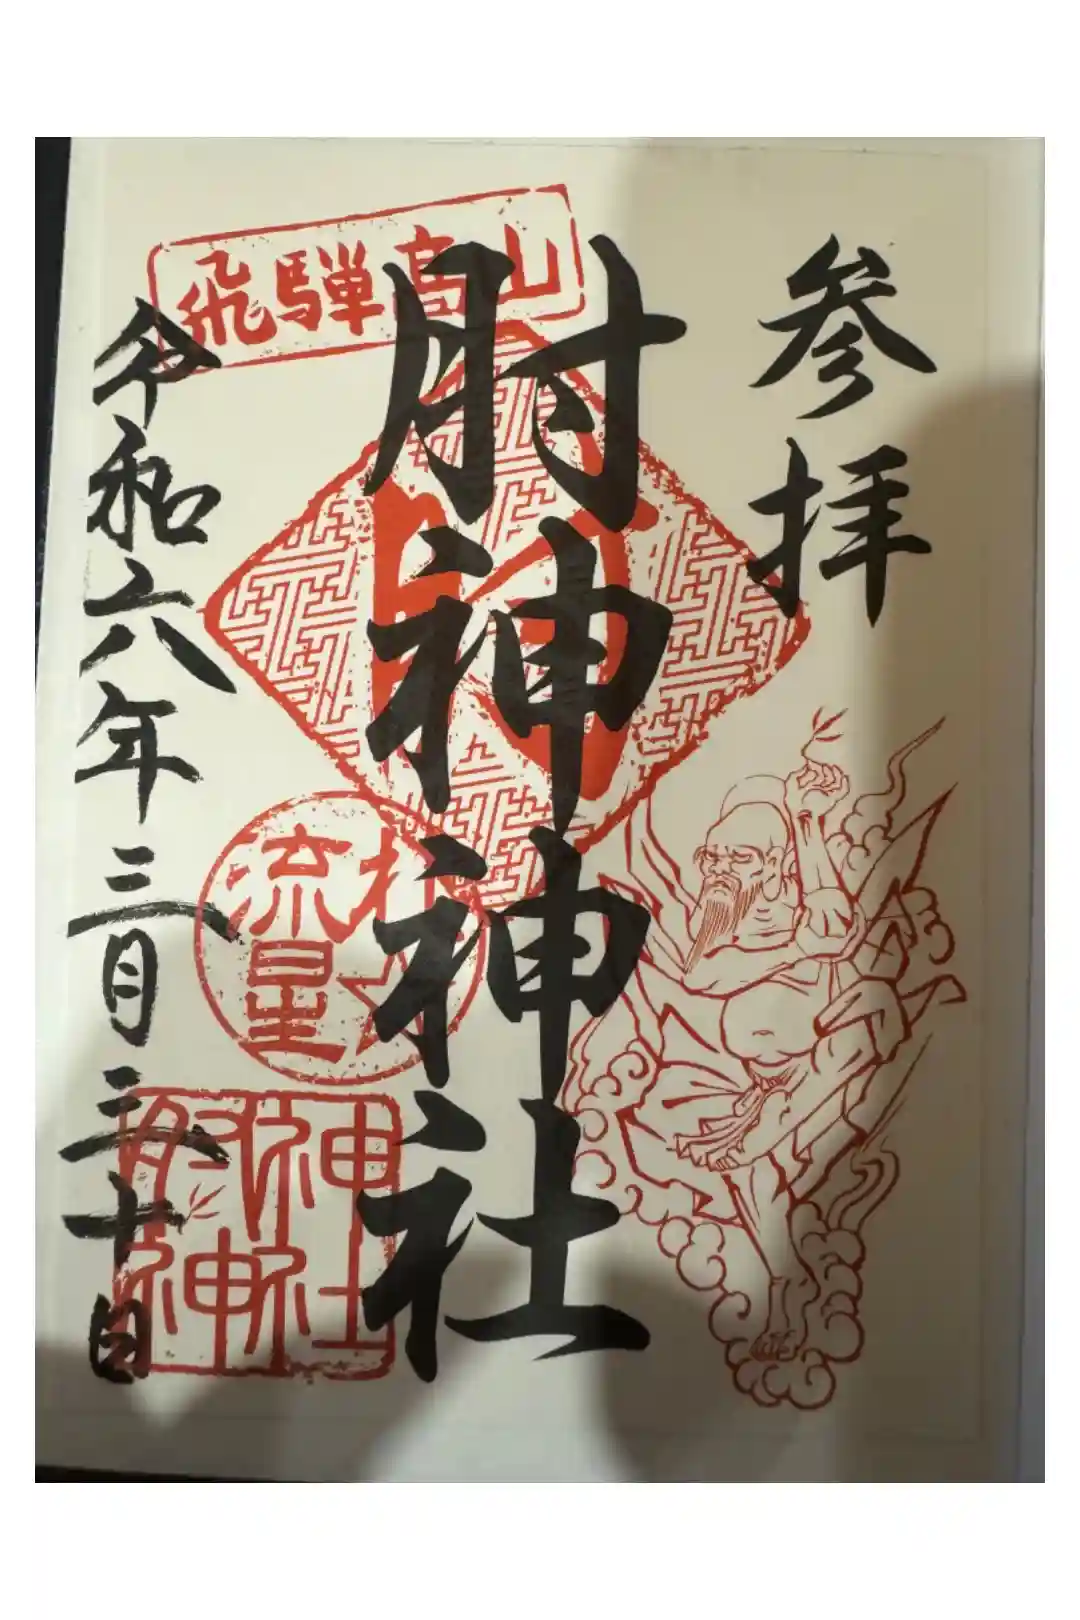 参拝
飛騨高山
肘神神社
流星
肘神
神社
令和六年三月三十日